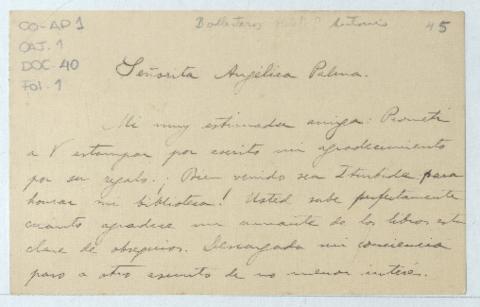 CO-AP1
CAJ. 1
DOC. 40
Fol. 1
Ballesteros Antonio
45
Señorita Angélica Palma.
Mi muy estimada amiga: Prometí
a V estampar por escrito mi agradecimiento
por su regalo. ¡Bien venido sea Iturbide para
honrar mi biblioteca! Usted sabe perfectamente
cuánto agradece un amante de los libros esta
clase de obsequios. Descargada mi conciencia
paso a otro asunto de no menor interés.